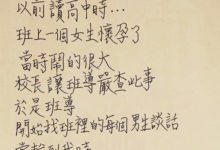 以前讀高中時...
班上一個女生懷孕了
當時鬧的很大
校長讓班導嚴查此事
於是班導
開始找班裡的每個男生談話